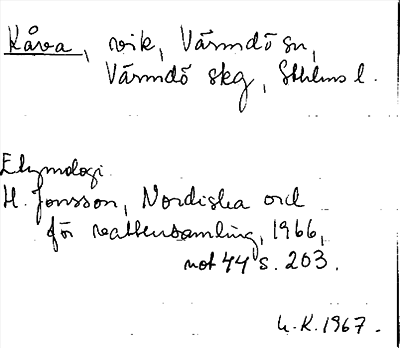 Kåva, vik, Värmdö sn,
Värmdö skg, Sthlms l.
Etymologi
H. Jonsson, Nordiska ord
för vattensamling, 1966,
not 44 s. 203.
H.K. 1967.